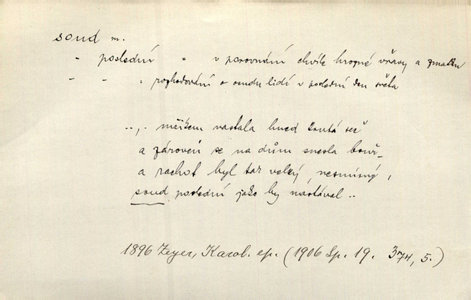 soud m.
" poslední " v porovnání chvíle hrozné vřavy a zmatku
" " " rozhodování o osudu lidí v poslední den světa
..,. mžikem nastala hned krutá seč
a zároveň se na dům snesla bouř
a rachot byl tak velký, nesmírný,
soud poslední jako by nastával ..
1896 Zeyer, Karol. ep. (1906 Sp. 19. 374, 5.)